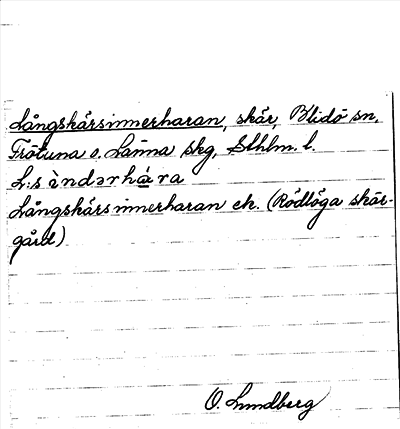 Långskärsinnerharan, skär, Blidö sn,
Frötuna o. Länna skg, Sthlm. l.
L:s ìndərhá̱ra
Långskärsinnerharan ek. (Rödlöga skär-
gård)
O. Lundberg